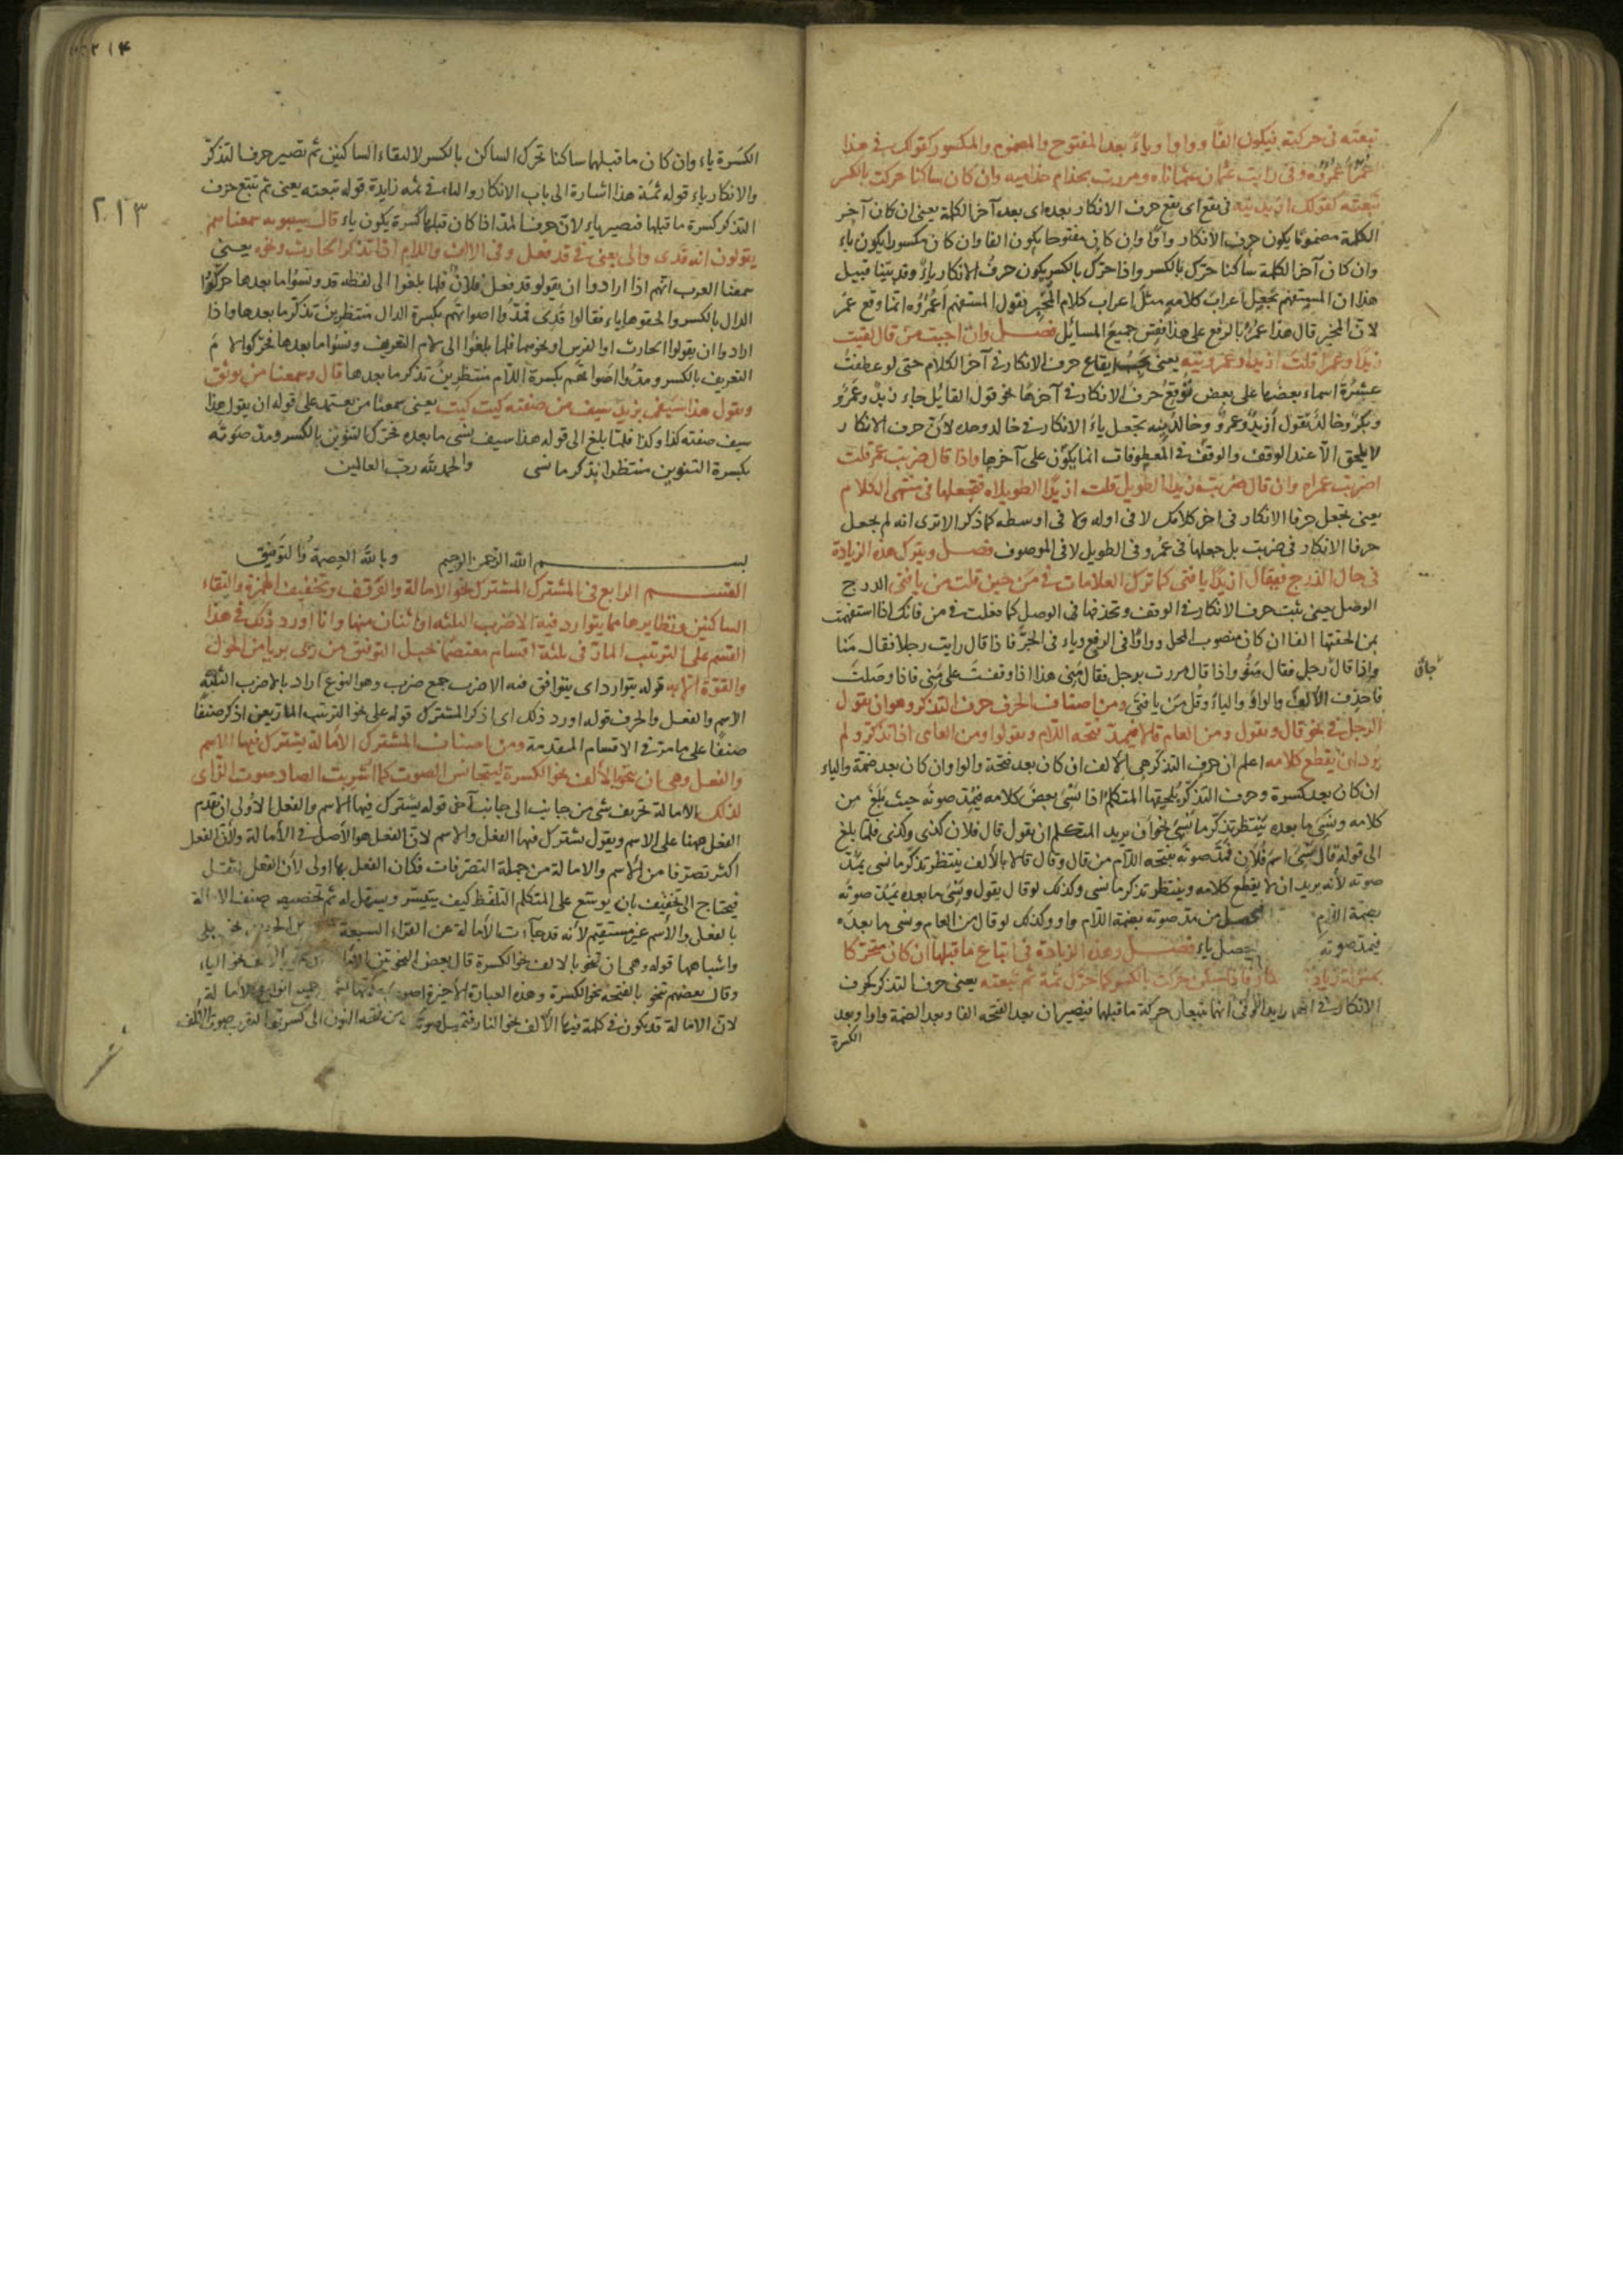 تبعته فى حركته فيكون الفا وواوا وياء بعد المفتوح والمضموم والمكسور كقولك فى هذا
عمر أعمروه وفى رايت عثمان أعثماناه ومررت بحذام أحذاميه وان كان ساكنا حركت بالكسر
تبعته كقولك ازيدنيه فى يقع اى يقع حرف الانكار بعده اى بعد آخر الكلمة يعنى ان كان آخر
الكلمة مضموما يكون حرف الانكار واوا وان كان مفتوحا يكون الفا وان كان مكسورا يكون ياء
وان كان آخر الكلمة ساكنا حرك بالكسر واذا حرك بالكسر يكون حرف الانكار ياء وقد بينا قبيل
هذا ان المستفهم يجعل اعراب كلامه مثل اعراب كلام المخبر يقول المستفهم أعمروه انما وقع عمر
لان المخبر قال هذا عمر بالرفع على هذا فقس جميع المسائل فصل وان اجبت من قال لقيت
زيدا وعمرا قلت ازيدا وعمرنيه يعنى يجب ايقاع حرف الانكار فى آخر الكلام حتى لو عطفت
عشرة اسماء بعضها على بعض توقع حرف الانكار فى آخرها نحو قول القايل جاء زيد وعمرو
وبكر وخالد تقول أزيد وعمرو وخالدنيه تجعل ياء الانكار فى خالد وحده لأن حرف الانكار
لا يلحق الا عند الوقف والوقف فى المعطوفات انما يكون على آخرها واذا قال ضربت عمر قلت
اضربت عمراه وان قال ضربت زيدا الطويل قلت ازيدا الطويلاه فتجعلها فى منتهى الكلام
يعنى تجعل حرف الانكار فى اخر كلامك لا فى اوله ولا فى اوسطه كما ذكر الا ترى انه لم يجعل
حرف الانكار فى ضربت بل جعلها فى عمر وفى الطويل لا فى الموصوف فصل ويترك هذه الزيادة
فى حال الدرج فيقال ازيدا يا فتى كما ترك العلامات فى من حين قلت من يا فتى الدرج
الوصل يعنى يثبت حرف الانكار فى الوقف وتحذفها فى الوصل كما فعلت فى من فانك اذا استفهمت
بمن الحقتها الفا ان كان منصوب المحل وواوا فى الرفع وياء فى الجر فاذا قال رايت رجلا فقال منا
واذا قال رجل فقال منو واذا قال مررت برجل فقال منى هذا اذا وقفت على منى فاذا وصلت
جاءنى
فاحذف الألف والواو والياء وقل من يا فتى ومن اصناف الحرف حرف التذكر وهو ان يقول
الرجل فى نحو قال ويقول ومن العام قالا فيمد فتحه اللام ويقولوا ومن العامى اذا تذكر ولم
يرد ان يقطع كلامه اعلم ان حرف التذكر هى الالف ان كان بعد فتحة والواو ان كان بعد ضمة والياء
ان كان بعد كسرة وحرف التذكر يلحقها المتكلم اذا نسى بعض كلامه فيمد صوته حيث بلغ من
كلامه ونسى ما بعده ينتظر تذكر ما نسى نحو أن يريد المتكلم ان يقول قال فلان كذى وكذى فلما بلغ
الى قوله قال نسى اسم فلان فمد صوته بفتحه اللام من قال وقال قالا بالألف ينتظر تذكر ما نسى يمد
صوته لأنه يريد ان لا يقطع كلامه وينتظر تذكر ما نسى وكذلك لو قال يقول ونسى ما بعده يمد صوته
بضمة اللام فيحصل من مد صوته بضمة اللام واو وكذلك لو قال من العام ونسى ما بعده
فيمد صوته يحصل ياء فصل وهذه الزيادة فى اتباع ما قبلها ان كان متحركا
بمنزلة زيادة فاذا سكن حركت بالكسر كما حرك ثمة ثم تبعته يعنى حرف التذكر كحرف
الانكار فى انهما يتبعان حركة ما قبلها فيصيران بعد الفتحه الفا وبعد الضمة واوا وبعد
الكسرة
١٤
٢١٣
الكسرة ياء وان كان ما قبلها ساكنا تحرك الساكن بالكسر لالتقاء الساكنين ثم تصير حرف التذكر
والانكار ياء قوله ثمة هذا اشارة الى باب الانكار والهاء فى ثمه زايدة قوله تبعته يعنى ثم تتبع حرف
التذكر كسرة ما قبلها فتصير ياء لان حرف المد اذا كان قبلها كسرة يكون ياء قال سيبويه سمعناهم
يقولون انه قدى والى يعنى فى قد فعل وفى الالف واللام اذا تذكر الحارث ونحوه يعنى
سمعنا العرب انهم اذا ارادوا ان يقولو قد فعل فلان فلما بلغوا الى لفظه قد ونسوا ما بعدها حركوا
الدال بالكسر والحقوها ياء فقالوا قدى فمدوا اصواتهم بكسرة الدال منتظرين تذكر ما بعدها واذا
ارادوا ان يقولوا الحارث او الفرس او نحوهما فلما بلغوا الى لام التعريف ونسوا ما بعدها فحركوا لام
التعريف بالكسر ومدوا اصواتهم بكسرة اللام منتظرين تذكر ما بعدها قال وسمعنا من يوثق
ويقول هذا سيفنى يريد سيف من صفته كيت كيت يعنى سمعنا من يعتمد على قوله ان يقول هذا
سيف صفته كذا وكذا فلما بلغ الى قوله هذا سيف نسى ما بعده فحرك التنوين بالكسر ومد صوته
بكسرة التنوين منتظرا تذكر ما نسى والحمد لله رب العالمين
بسم الله الرحمن الرحيم وبالله العصمة والتوفيق
القسم الرابع فى المشترك المشترك نحو الامالة والوقف وتخفيف الهمزة والتقاء
الساكنين ونظايرها مما يتوارد فيه الاضرب الثلثه او اثنان منها وانا اورد ذلك فى هذا
القسم على الترتيب المار فى ثلثة اقسام معتصما بحبل التوفيق من ربى بريا من الحول
والقوة الا به قوله يتوارد اى يتوافق فيه الاضرب جمع ضرب وهو النوع اراد بالاضرب الثلثة
الاسم والفعل والحرف قوله اورد ذلك اى اذكر المشترك قوله على نحو الترتيب المار يعنى اذكر صنفا
صنفا على ما مر فى الاقسام المتقدمة ومن اصناف المشترك الأمالة يشترك فيها الاسم
والفعل وهى ان تنحو بالألف نحو الكسرة ليتجانس الصوت كما اشربت الصاد صوت الزاى
لذلك الامالة تحريف شى من جانب الى جانب آخر قوله يشترك فيها الاسم والفعل الأولى ان تقدم
الفعل ههنا على الاسم ويقول يشترك فيها الفعل والاسم لان الفعل هو الأصل فى الأمالة ولأن الفعل
اكثر تصرفا من الاسم والامالة من جملة التصرفات فكان الفعل بها اولى لأن الفعل يثقل
فيحتاج الى تخفيف بان يوسع على المتكلم التلفظ كيف يتيسر ويسهل له ثم تخصيصه صنف الامالة
بالفعل والأسم غير مستقيم لأنه قد جاءت الأمالة عن القراء السبعة من الحروف نحو بلى
واشباهها قوله وهى ان تنحو بالالف نحو الكسرة قال بعض النحوتين الامالة ان تنحو بالألف نحو الياء
وقال بعضهم تنحو بالفتحة نحو الكسرة وهذه العبارة الأخيرة اصوب جميع انواع الأمالة
لان الامالة قد يكون فى كلمة فيها الألف نحو النار فتميل صوتك من فتحه النون الى كسرتها لتقرب صوت الألف